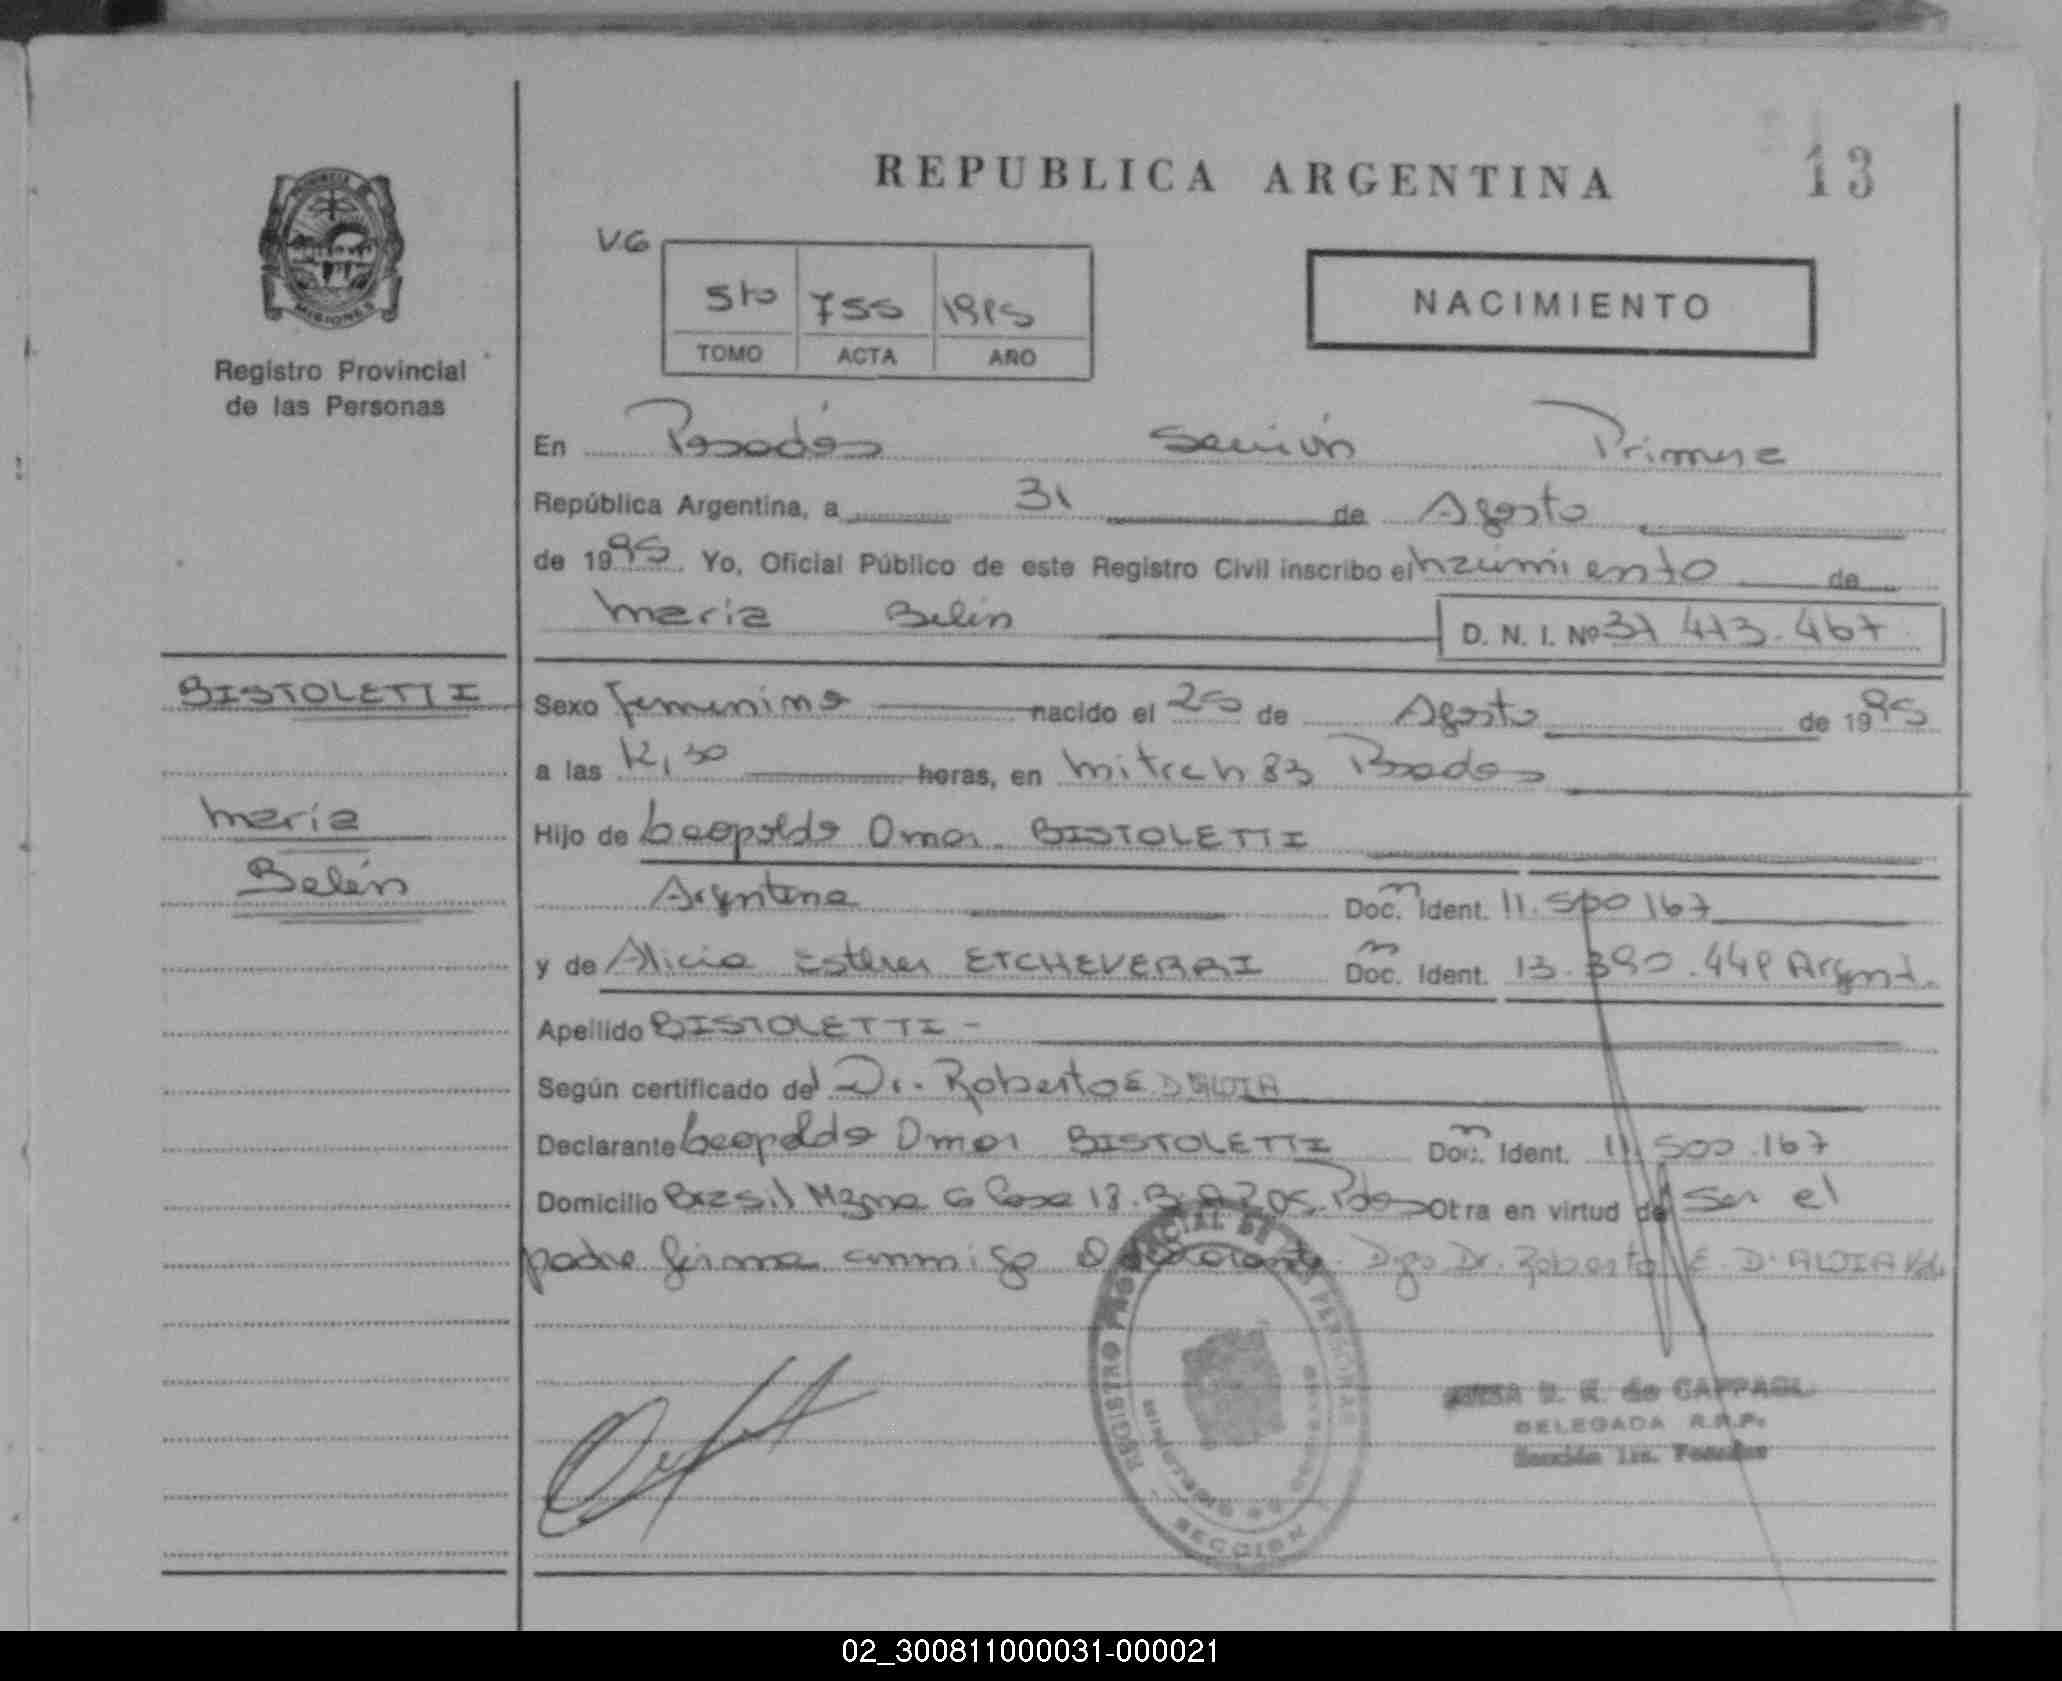 REPUBLICA ARGENTINA
13
PROVINCIA DE
MISIONES
Registro Provincial
de las Personas
V.G
5to 755 1995
TOMO ACTA AÑO
NACIMIENTO
En Posadas Sección Primera
República Argentina, a 31 de Agosto
de 1995. Yo, Oficial Público de este Registro Civil inscribo el nacimiento de
María Belén D. N. I. Nº
BISTOLETTI
María
Belén
Sexo femenino nacido el de Agosto de 1995
a las 12,30 horas, en Mitre 83 Posadas
Hijo de Leopoldo Omar BISTOLETTI
Argentina Doc. Ident. 11.500 167
y de Alicia Esther ETCHEVERRI Doc. Ident. 13.390. Argent.
Apellido BISTOLETTI -
Según certificado del Dr. Roberto E. D'ALOIA
Declarante Leopoldo Omar BISTOLETTI Doc. Ident. 11.500.167
Domicilio Brasil Mzna G Casa 18. Pdas Otra en virtud de Ser el
padre firma conmigo el declarante. Digo Dr. Roberto E. D'ALOIA Vale
REGISTRO PROVINCIAL DE LAS PERSONAS
MINISTERIO DE GOBIERNO
SECCION 1
de CAPPAGLI
DELEGADA R.P.P.
Sección 1ra. Posadas
02_300811000031-000021